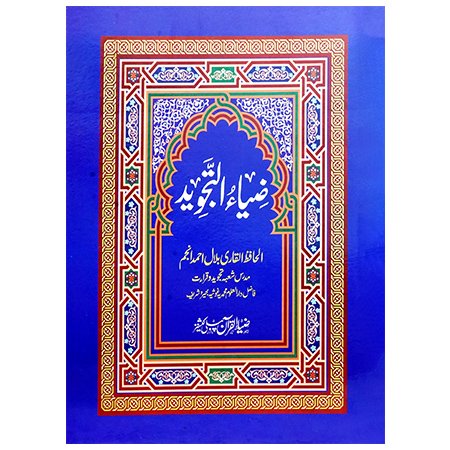 ضیاءُ التجوید
الحافظ القاری بلال احمد انجم
مدرس شعبہ تجوید و قرات
فاضل دارالعلوم محمدیہ غوثیہ بھیرہ شریف
ضیاء القرآن پبلی کیشنز